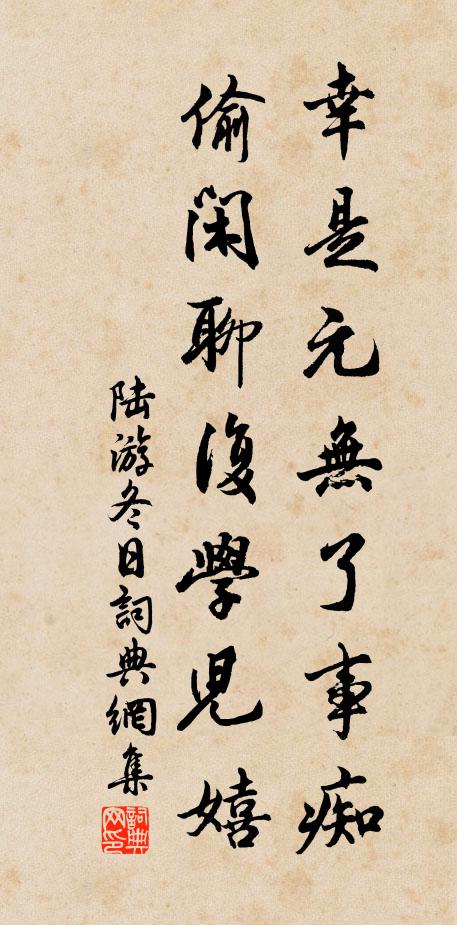 幸是元無了事痴
偷闲聊復學児嬉
陆游冬日詞典網集
詞典网印